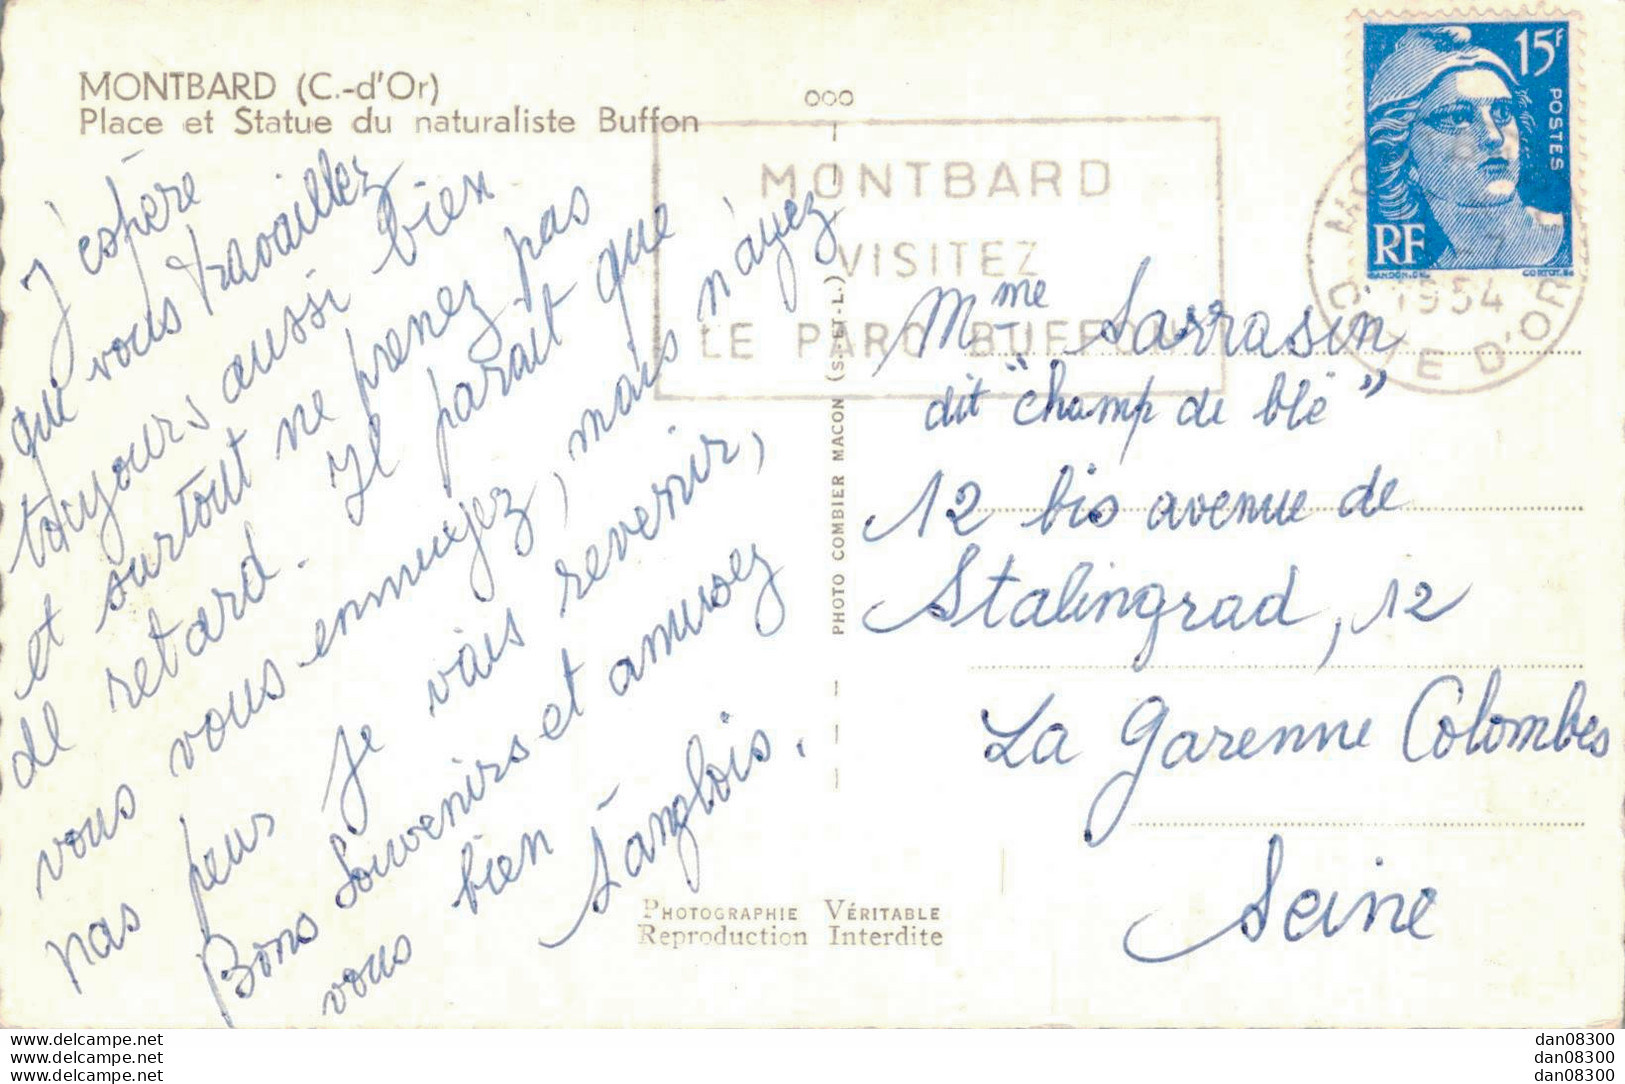 MONTBARD (C.-d'Or)
Place et Statue du naturaliste Buffon
J'espère
que vous travaillez
toujours aussi bien
et surtout ne prenez pas
de retard. Il parait que
vous vous ennuyez, mais n'ayez
pas peur je vais revenir,
Bons souvenirs et amusez
vous bien
Langlois.
ooo
PHOTO COMBIER MACON (S.-ET-L.)
MONTBARD
VISITEZ
LE PARC BUFFON
1954
COTE D'OR
15F
POSTES
RF
GANDON.DEL
CORTOT.SC
Mme Sarrasin
dit "champ de blé"
12 bis avenue de
Stalingrad, 12
La Garenne Colombes
Seine
PHOTOGRAPHIE VÉRITABLE
Reproduction Interdite
www.delcampe.net
www.delcampe.net
www.delcampe.net
dan08300
dan08300
dan08300